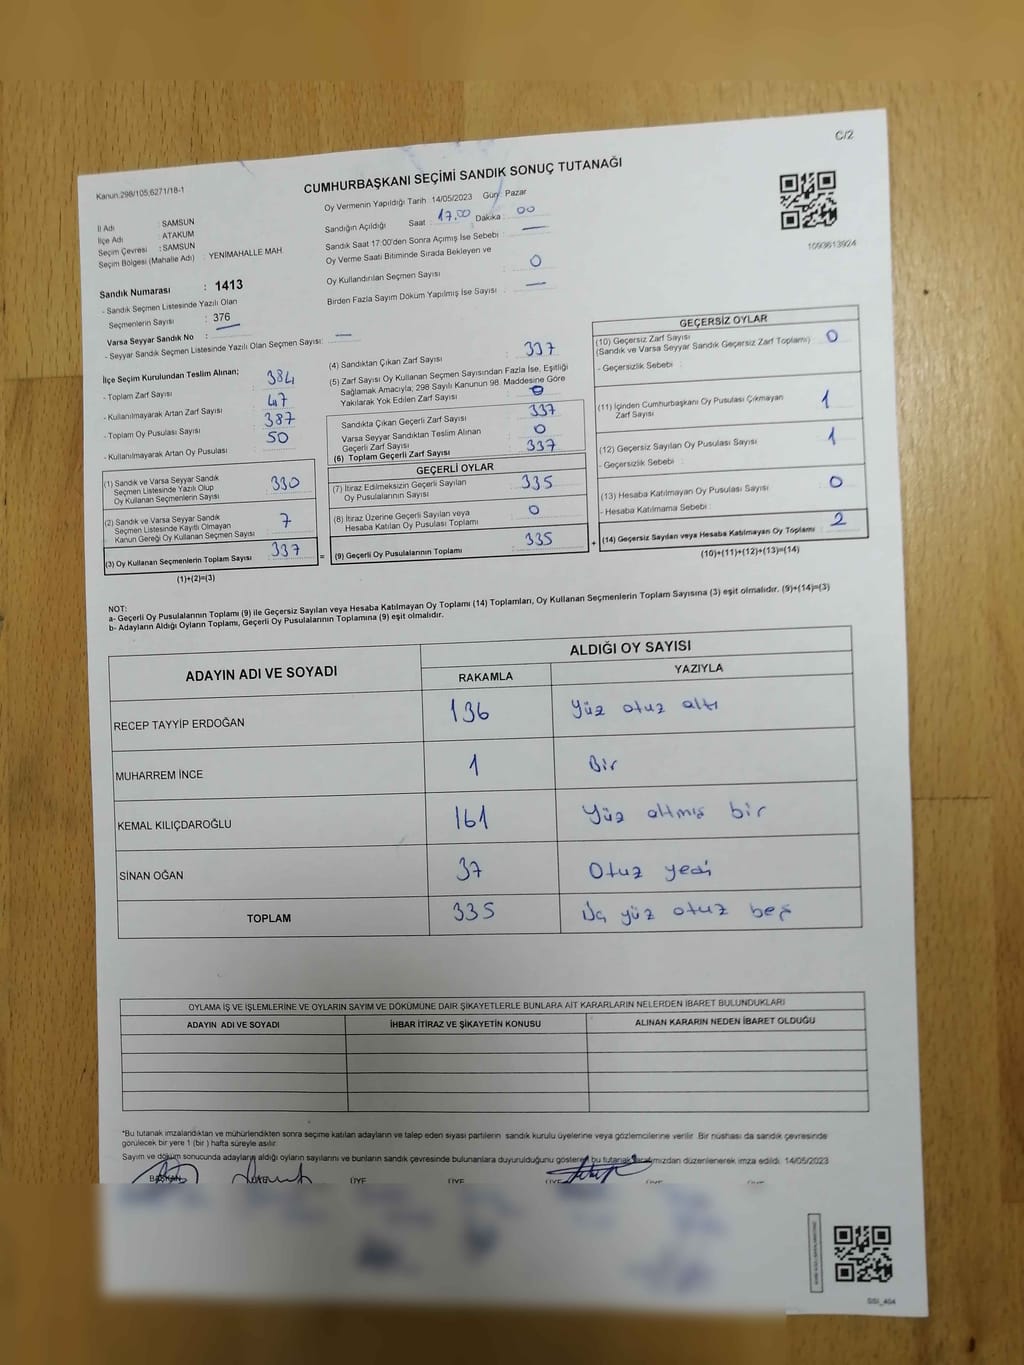 C/2
Kanun.298/105,6271/18-1
CUMHURBAŞKANI SEÇİMİ SANDIK SONUÇ TUTANAĞI
İl Adı : SAMSUN
İlçe Adı : ATAKUM
Seçim Çevresi : SAMSUN
Seçim Bölgesi (Mahalle Adı) : YENİMAHALLE MAH.
Oy Vermenin Yapıldığı Tarih 14/05/2023 Gün: Pazar
Sandığın Açıldığı Saat : 17.00 Dakika : 00
Sandık Saat 17:00'den Sonra Açımış İse Sebebi : —
Oy Verme Saati Bitiminde Sırada Bekleyen ve
Oy Kullandırılan Seçmen Sayısı : 0
Birden Fazla Sayım Döküm Yapılmış İse Sayısı : —
1093613924
Sandık Numarası : 1413
- Sandık Seçmen Listesinde Yazılı Olan
Seçmenlerin Sayısı : 376
Varsa Seyyar Sandık No : —
- Seyyar Sandık Seçmen Listesinde Yazılı Olan Seçmen Sayısı: —
İlçe Seçim Kurulundan Teslim Alınan;
- Toplam Zarf Sayısı : 384
- Kullanılmayarak Artan Zarf Sayısı : 47
- Toplam Oy Pusulası Sayısı : 387
- Kullanılmayarak Artan Oy Pusulası : 50
(1) Sandık ve Varsa Seyyar Sandık
Seçmen Listesinde Yazılı Olup
Oy Kullanan Seçmenlerin Sayısı : 330
(2) Sandık ve Varsa Seyyar Sandık
Seçmen Listesinde Kayıtlı Olmayan
Kanun Gereği Oy Kullanan Seçmen Sayısı : 7
(3) Oy Kullanan Seçmenlerin Toplam Sayısı : 337 =
(1)+(2)=(3)
(4) Sandıktan Çıkan Zarf Sayısı : 337
(5) Zarf Sayısı Oy Kullanan Seçmen Sayısından Fazla İse, Eşitliği
Sağlamak Amacıyla; 298 Sayılı Kanunun 98. Maddesine Göre
Yakılarak Yok Edilen Zarf Sayısı : 0
Sandıkta Çıkan Geçerli Zarf Sayısı : 337
Varsa Seyyar Sandıktan Teslim Alınan
Geçerli Zarf Sayısı : 0
(6) Toplam Geçerli Zarf Sayısı : 337
GEÇERLİ OYLAR
(7) İtiraz Edilmeksizin Geçerli Sayılan
Oy Pusulalarının Sayısı : 335
(8) İtiraz Üzerine Geçerli Sayılan veya
Hesaba Katılan Oy Pusulası Toplamı : 0
(9) Geçerli Oy Pusulalarının Toplamı : 335 +
GEÇERSİZ OYLAR
(10) Geçersiz Zarf Sayısı
(Sandık ve Varsa Seyyar Sandık Geçersiz Zarf Toplamı) : 0
- Geçersizlik Sebebi :
(11) İçinden Cumhurbaşkanı Oy Pusulası Çıkmayan
Zarf Sayısı : 1
(12) Geçersiz Sayılan Oy Pusulası Sayısı : 1
- Geçersizlik Sebebi :
(13) Hesaba Katılmayan Oy Pusulası Sayısı : 0
- Hesaba Katılmama Sebebi :
(14) Geçersiz Sayılan veya Hesaba Katılmayan Oy Toplamı : 2
(10)+(11)+(12)+(13)=(14)
NOT:
a- Geçerli Oy Pusulalarının Toplamı (9) ile Geçersiz Sayılan veya Hesaba Katılmayan Oy Toplamı (14) Toplamları, Oy Kullanan Seçmenlerin Toplam Sayısına (3) eşit olmalıdır. (9)+(14)=(3)
b- Adayların Aldığı Oyların Toplamı, Geçerli Oy Pusulalarının Toplamına (9) eşit olmalıdır.
ADAYIN ADI VE SOYADI ALDIĞI OY SAYISI
RAKAMLA YAZIYLA
RECEP TAYYİP ERDOĞAN 136 Yüz otuz altı
MUHARREM İNCE 1 Bir
KEMAL KILIÇDAROĞLU 161 Yüz altmış bir
SİNAN OĞAN 37 Otuz yedi
TOPLAM 335 Üç yüz otuz beş
OYLAMA İŞ VE İŞLEMLERİNE VE OYLARIN SAYIM VE DÖKÜMÜNE DAİR ŞİKAYETLERLE BUNLARA AİT KARARLARIN NELERDEN İBARET BULUNDUKLARI
ADAYIN ADI VE SOYADI İHBAR İTİRAZ VE ŞİKAYETİN KONUSU ALINAN KARARIN NEDEN İBARET OLDUĞU
*Bu tutanak imzalandıktan ve mühürlendikten sonra seçime katılan adayların ve talep eden siyasi partilerin sandık kurulu üyelerine veya gözlemcilerine verilir. Bir nüshası da sandık çevresinde
görülecek bir yere 1 (bir ) hafta süreyle asılır.
Sayım ve döküm sonucunda adayların aldığı oyların sayılarını ve bunların sandık çevresinde bulunanlara duyurulduğunu gösteren bu tutanak tarafımızdan düzenlenerek imza edildi. 14/05/2023
BAŞKAN ÜYE ÜYE ÜYE
SSI_404